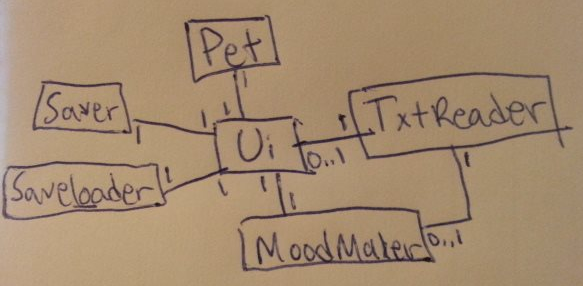 Pet
1
Saver
1
1
1
Ui
1
TxtReader
0..1
Saveloader
1
1
1
1
1
MoodMaker
0..1